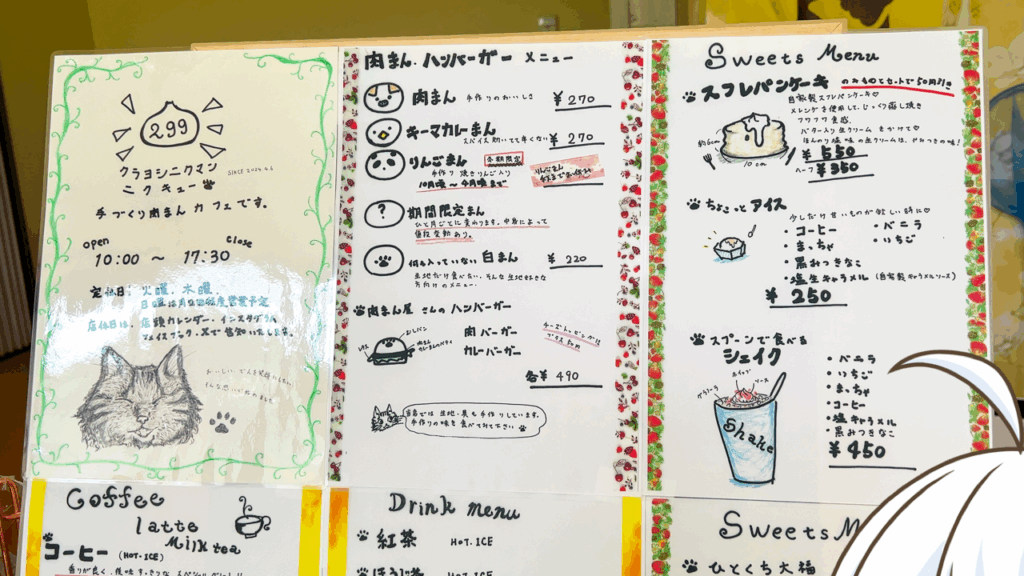 299
クラヨシニクマン
ニクキュー
SINCE 2024.6.6
手づくり肉まんカフェです。
open
close
10:00 〜 17:30
定休日: 火曜、水曜、
店休日は、店頭カレンダー、インスタグラム
フェイスブック、Xで告知いたします。
肉まん、ハンバーガー メニュー
肉まん 手作りのおいしさ ¥270
キーマカレーまん ¥270
スパイス効いても辛くない
りんごまん 冬期限定
手作り 焼きりんご入り
10月頃 〜 4月頃まで
?
期間限定まん
ひと月ごとに変わります。中身によって
値段変動あり。
何も入っていない 白まん ¥220
生地だけ食べたい、そんな生地好きな
方向けのメニュー。
肉まん屋さんのハンバーガー
むしパン
レタス
肉まん
肉バーガー
カレーバーガー
各¥490
当店では生地、具も手作りしています。
手作りの味を食べてみて下さい
Sweets Menu
スフレパンケーキ のみものとセットで50円引き
自家製スフレパンケーキ♡
メレンゲを使用して、じっくり蒸し焼き
フワフワ食感。
バターと生クリームをかけて♡
ほんのり塩味の生クリームは、やみつきの味!
約6cm
10cm
¥550
ハーフ ¥350
ちょこっとアイス
少しだけ甘いものが欲しい時に♡
・コーヒー ・バニラ
・まっちゃ ・いちご
・黒みつきなこ
・塩生キャラメル (自家製キャラメルソース)
¥250
スプーンで食べる
シェイク
グラノーラ
ホイップ
ソース
Shake
・バニラ
・いちご
・まっちゃ
・コーヒー
・塩キャラメル
・黒みつきなこ
¥450
Coffee
latte
Milk tea
コーヒー (HOT.ICE)
Drink menu
紅茶 HOT.ICE
ほうじ茶 HOT.ICE
Sweets M
ひとくち大福